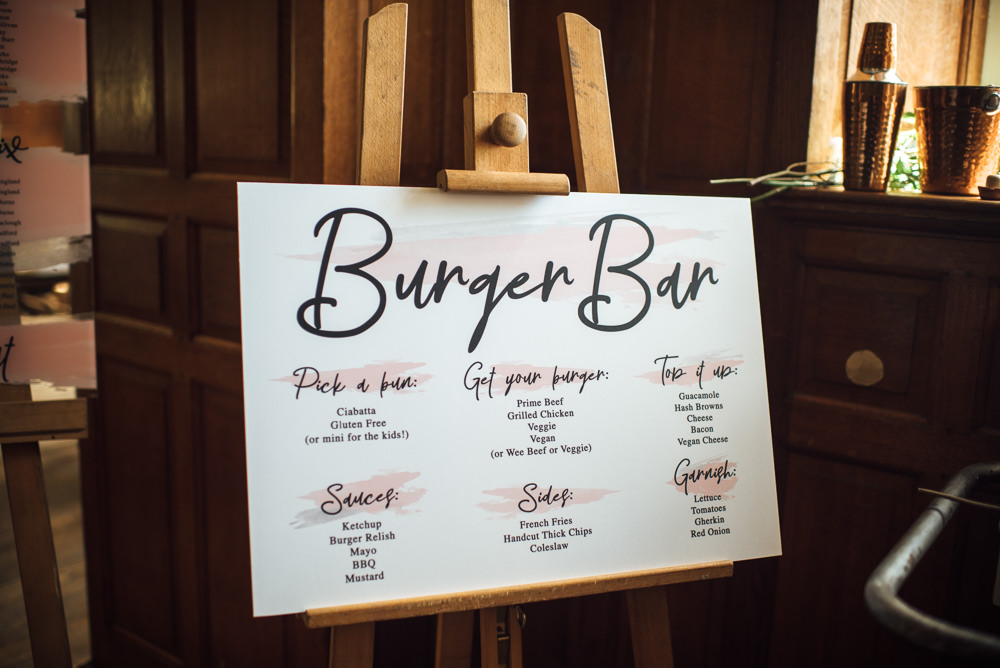 Burger Bar
Pick a bun:
Ciabatta
Gluten Free
(or mini for the kids!)
Get your burger:
Prime Beef
Grilled Chicken
Veggie
Vegan
(or Wee Beef or Veggie)
Top it up:
Guacamole
Hash Browns
Cheese
Bacon
Vegan Cheese
Sauces:
Ketchup
Burger Relish
Mayo
BBQ
Mustard
Sides:
French Fries
Handcut Thick Chips
Coleslaw
Garnish:
Lettuce
Tomatoes
Gherkin
Red Onion